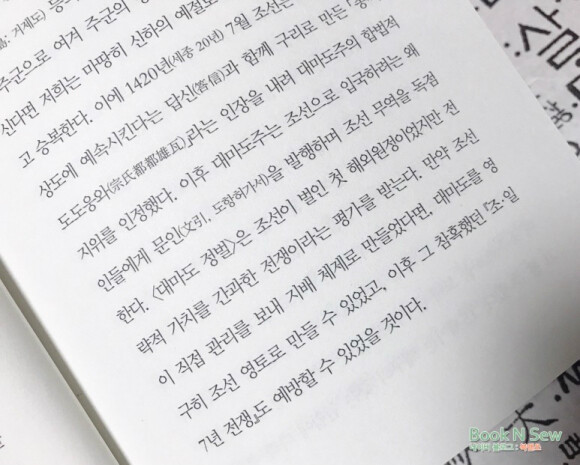 : 거제도)
주군으로 여겨 주군의
신다면 저희는 마땅히 신하의 예절로
고 승복한다. 이에 1420년(세종 20년) 7월 조선은
상도에 예속시킨다는 답신(答信)과 함께 구리로 만든
도도웅와(宗氏都都雄瓦)』라는 인장을 내려 대마도주의 합법적
지위를 인정했다. 이후 대마도주는 조선으로 입국하려는 왜
인들에게 문인(文引, 도항허가서)을 발행하며 조선 무역을 독점
한다. 〈대마도 정벌〉은 조선이 벌인 첫 해외원정이었지만 전
략적 가치를 간과한 전쟁이라는 평가를 받는다. 만약 조선
이 직접 관리를 보내 지배 체제로 만들었다면, 대마도를 영
구히 조선 영토로 만들 수 있었고, 이후 그 참혹했던 『조·일
7년 전쟁』도 예방할 수 있었을 것이다.
Book N Sew